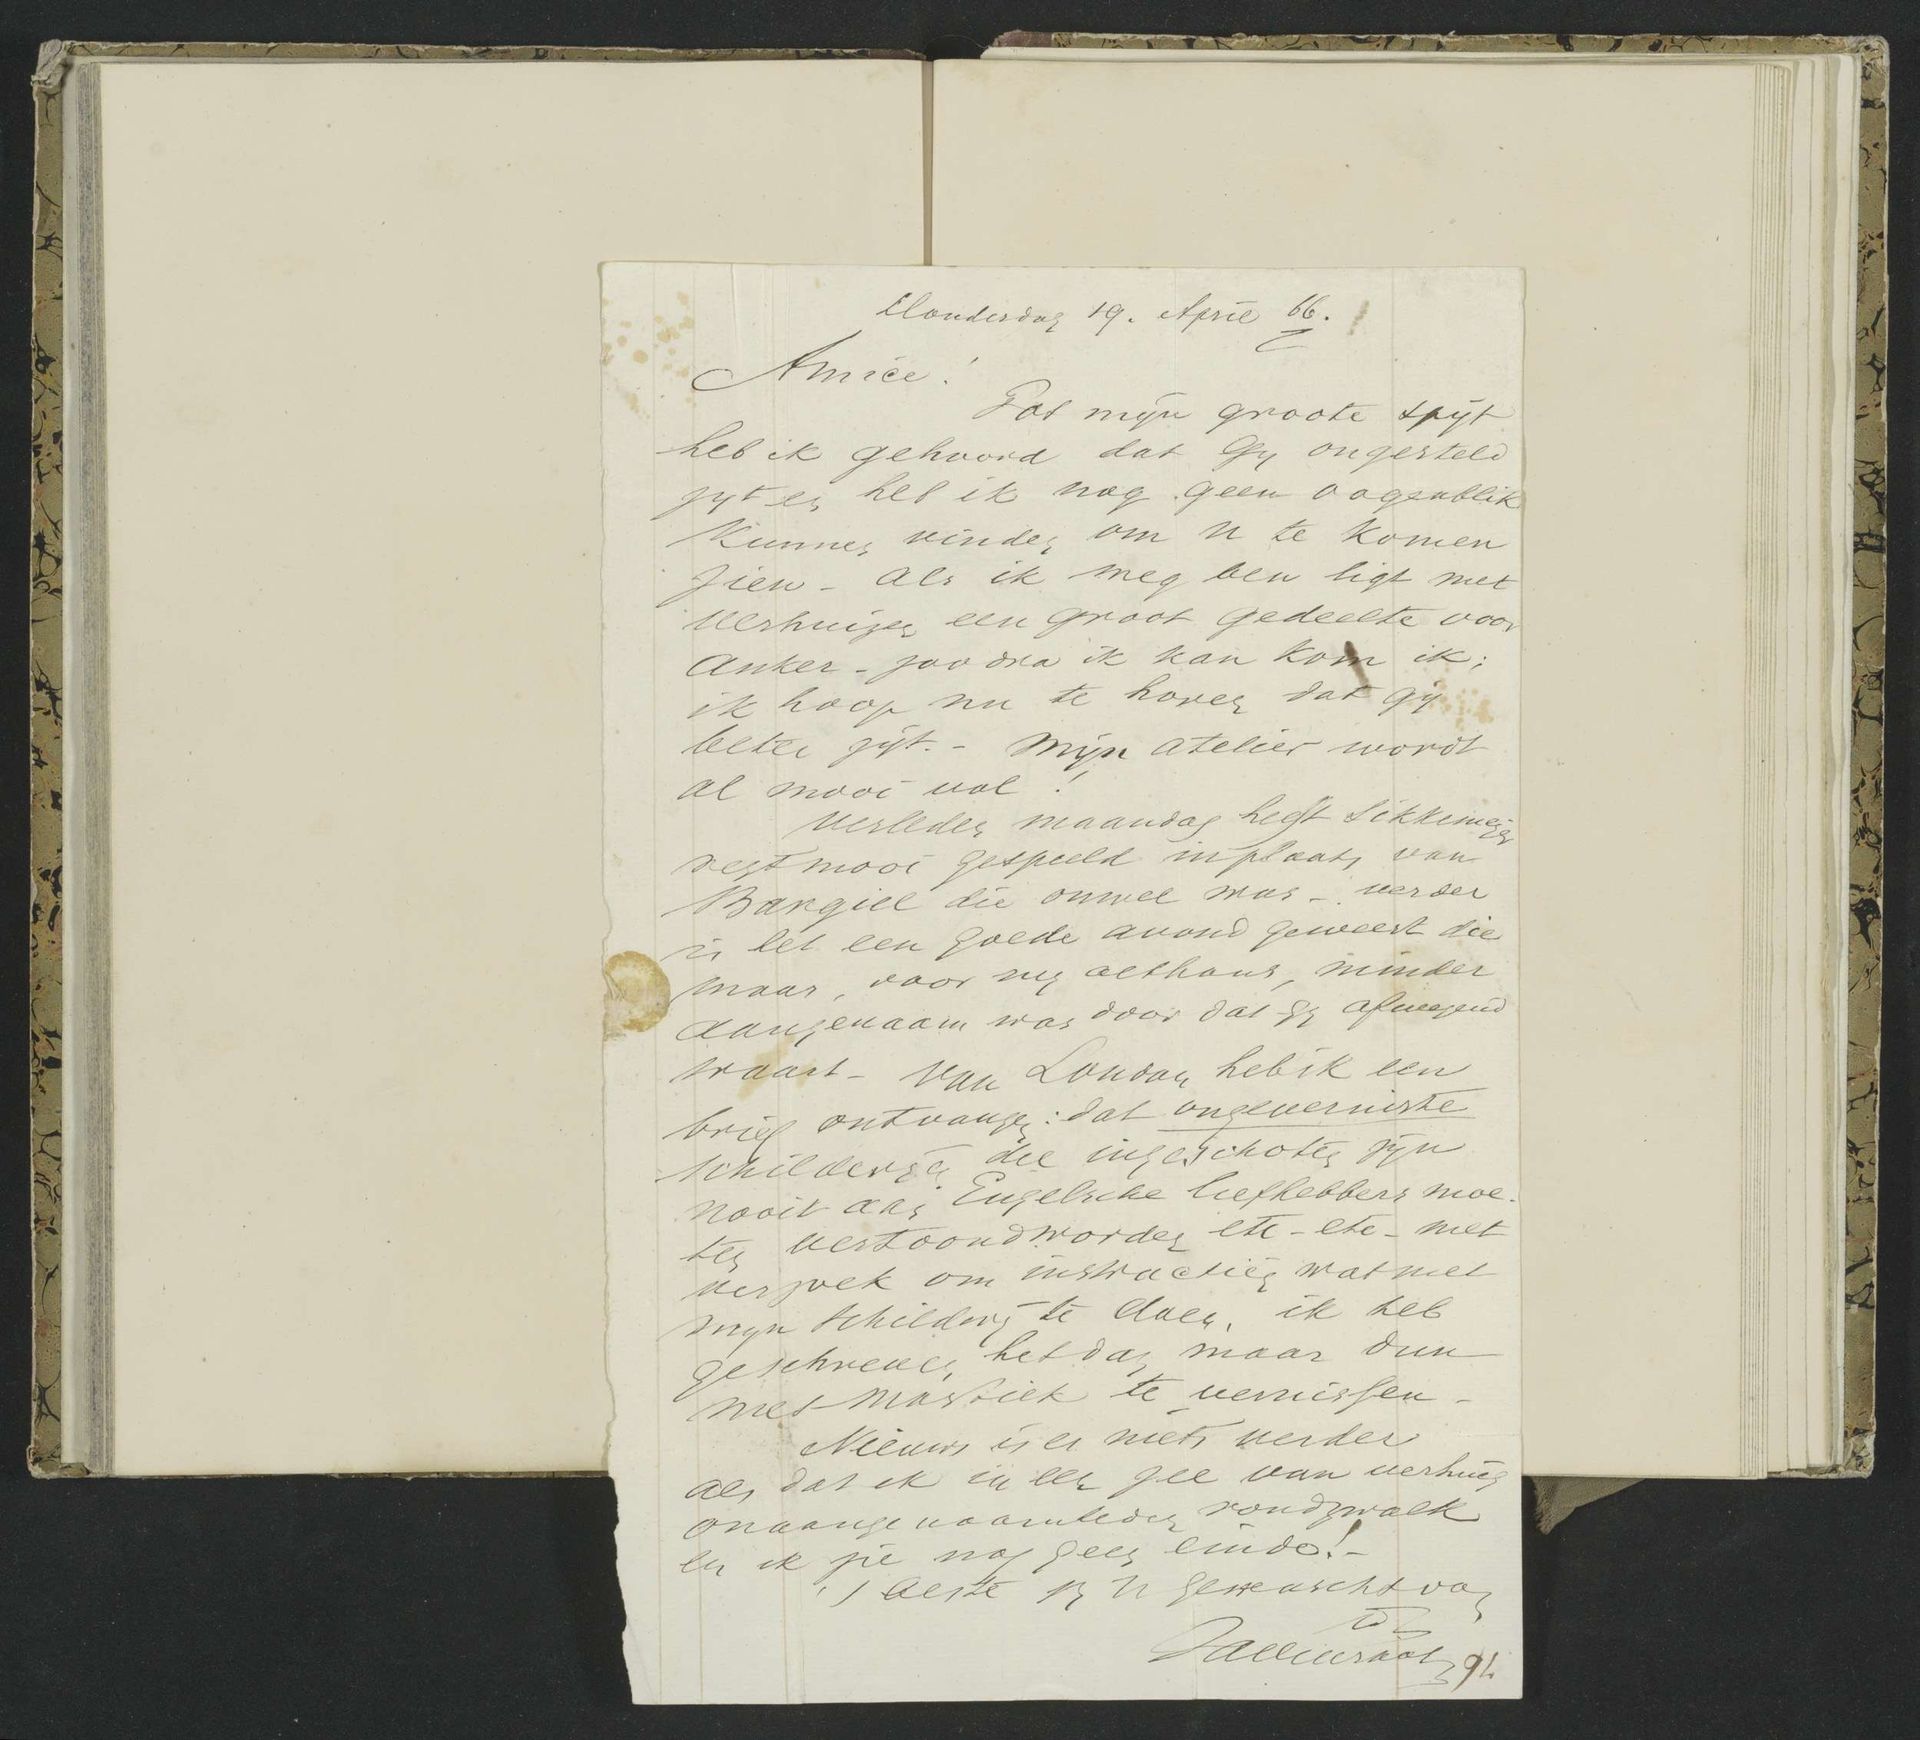 Donderdag 19. April 66.
Amice!
Tot mijn groote spijt
heb ik gehoord dat Gij ongesteld
zijt en heb ik nog geen oogenblik
kunnen vinden om U te komen
zien - als ik weg ben ligt met
verhuizen een groot gedeelte voor
anker - zoodra ik kan kom ik;
ik hoop nu te horen dat gij
beter zijt. - Mijn atelier wordt
al mooi vol!
Verleden maandag heeft
regt mooi gespeeld in plaats van
Bargiel die onwel was - verder
is het een goede avond geweest die
maar, voor mij althans, minder
aangenaam was door dat gij afwezend
waart - Van London heb ik een
brief ontvangen: dat ongeverniste
schilderijen die ingeschoten zijn
nooit aan Engelsche liefhebbers moe-
ten vertoond worden etc - etc - met
verzoek om instructien wat met
mijn schilderij te doen, ik heb
geschreven, het dan maar dun
met Mastiek te vernissen -
Nieuws is er niets verder
als dat ik in een zee van verhuis
onaangenaamheden rondzwalk
en ik zie nog geen einde! -
't beste zij U gewenscht van
tt
94